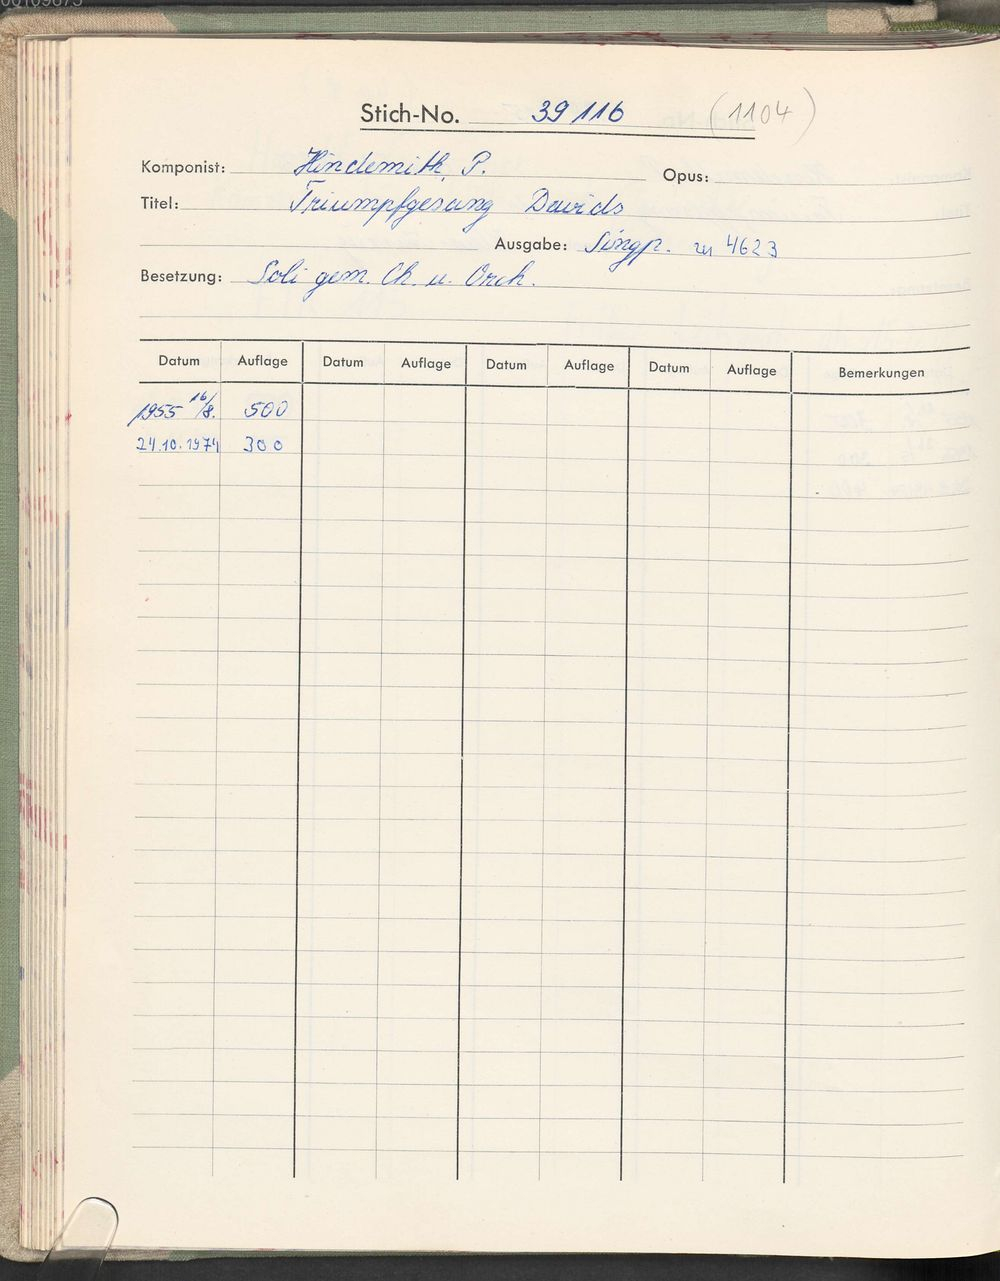 Stich-No. 39 116 (1104)
Komponist: Hindemith, P. Opus:
Titel: Triumpfgesang Davids
Ausgabe: Singp. zu 4623
Besetzung: Soli gem. Ch. u. Orch.
Datum Auflage Datum Auflage Datum Auflage Datum Auflage Bemerkungen
1955 16/8. 500
24.10.1974 300